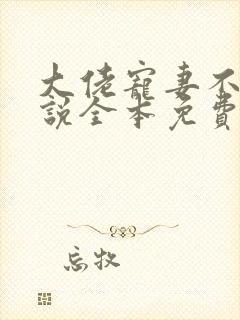 大佬寵妻不
說全本免費
忘牧